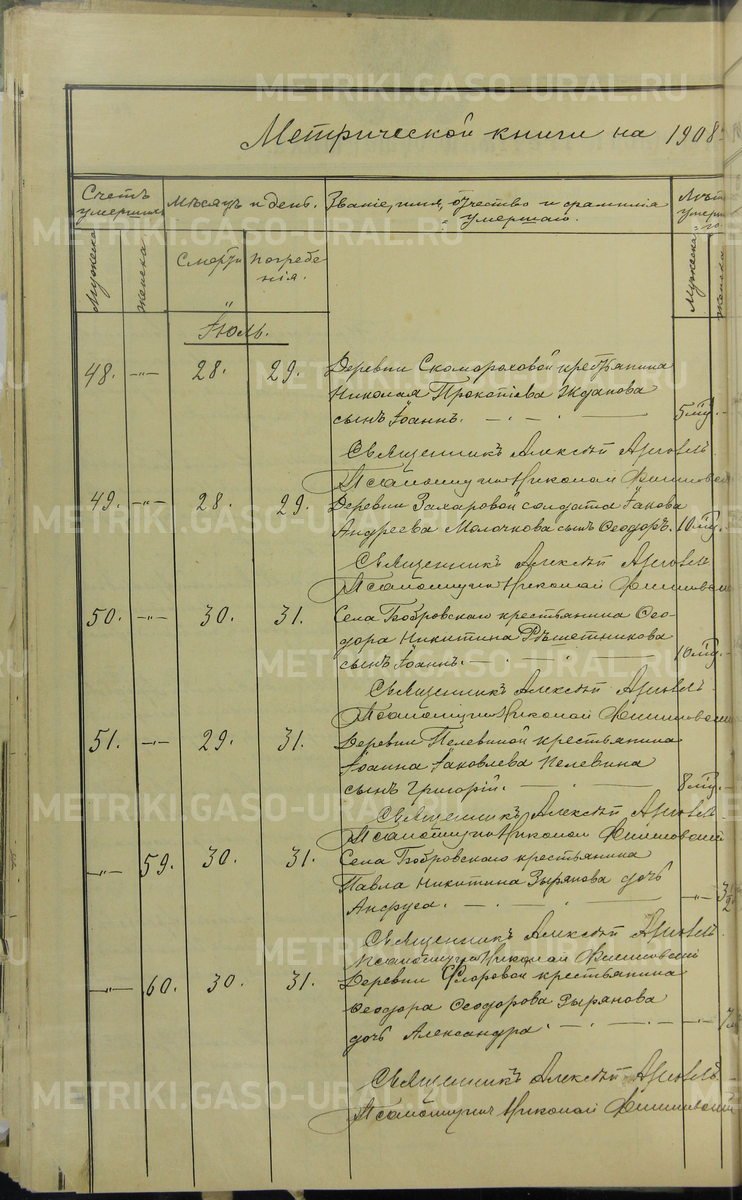 METRIKI.GASO-URAL.RU
Метрической книги на 1908
Счетъ умершихъ
Мѣсяцъ и день.
Званіе, имя, отчество и фамилія умершаго.
Лѣта умерша-го
Мужеска
Женска
Смерти
Погребенія.
Мужеска
Женска
Іюль.
48. -"- 28. 29. Деревни Скомороховой крестьянина
Николая Прокопіева Жданова
сынъ Іоаннъ. 5
Священникъ Алексѣй
Псаломщикъ Николай
49. -"- 28. 29. Деревни Захаровой солдата Іакова
Андреева Молочкова сынъ Ѳеодоръ. 10
Священникъ Алексѣй
Псаломщикъ Николай
50. -"- 30. 31. Села Бобровскаго крестьянина Ѳео-
дора Никитина Рѣшетникова
сынъ Іоаннъ. 10
Священникъ Алексѣй
Псаломщикъ Николай
51. -"- 29. 31. Деревни Пелевиной крестьянина
Іоанна Іаковлева Пелевина
сынъ Григорій. 8
Священникъ Алексѣй
Псаломщикъ Николай
-"- 59. 30. 31. Села Бобровскаго крестьянина
Павла Никитина Зырянова дочь
Анфуса. -"- 3 1/2
Священникъ Алексѣй
Псаломщикъ Николай
-"- 60. 30. 31. Деревни Флоровой крестьянина
Ѳеодора Ѳеодорова Зырянова
дочь Александра. -"- 7
Священникъ Алексѣй
Псаломщикъ Николай